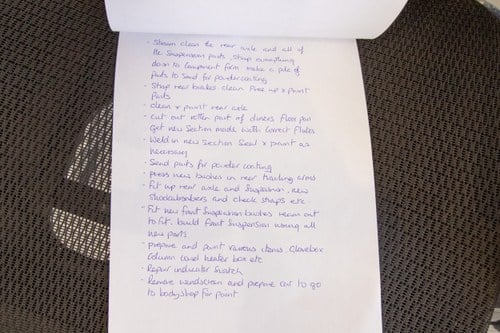 - Steam clean the rear axle and all of
the suspension parts, strip everything
down to component form make a pile of
parts to send for powdercoating
- Strip rear brakes clean free up & paint
parts
- clean & paint rear axle
- cut out rotten part of drivers floor pan
get new section made with correct flutes
- Weld in new section seal & paint as
necessary
- Send parts for powder coating
- press new bushes in rear trailing arms
- Fit up rear axle and suspension, new
shockabsorbers and check straps etc
- Fit new front suspension bushes ream out
to fit. build front suspension using all
new parts
- prepare and paint various items Glovebox
column cowl heater box etc
- Repair indicator switch
- Remove windscreen and prepare car to go
to bodyshop for paint